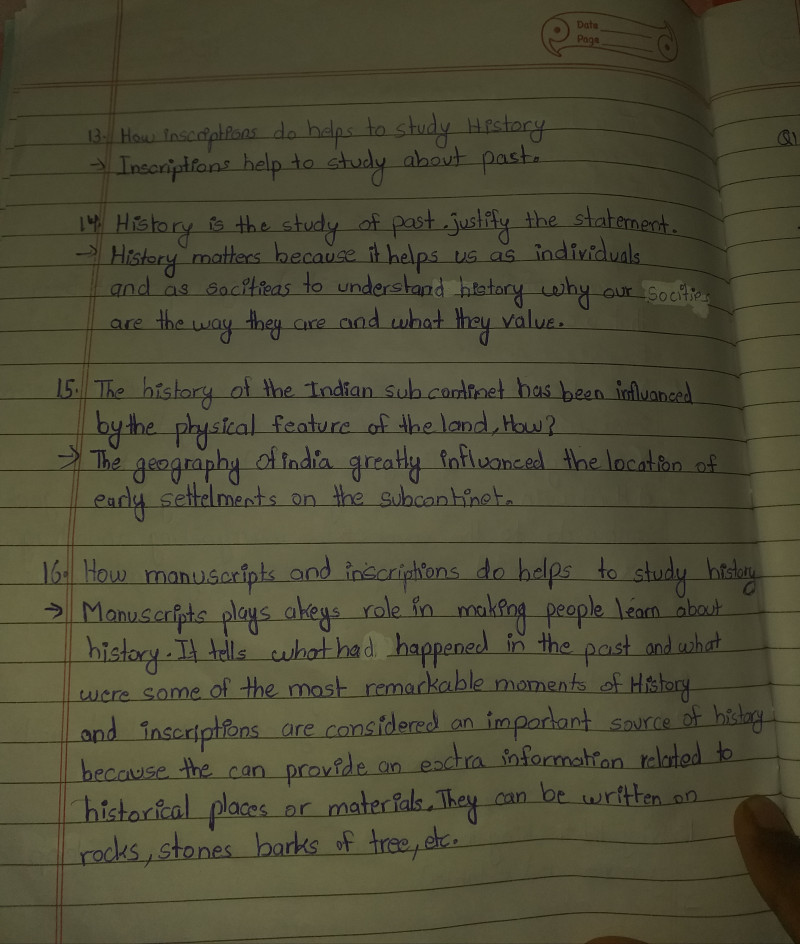 Date
Page
Q1
13. How inscriptions do helps to study History
→ Inscriptions help to study about past.
14. History is the study of past. justify the statement.
→ History matters because it helps us as individuals
and as socitieas to understand history why our Socities
are the way they are and what they value.
15. The history of the Indian sub continet has been influanced
by the physical feature of the land, How?
→ The geography of india greatly influonced the location of
early settelments on the subcontinet.
16. How manuscripts and inscriptions do helps to study history
→ Manuscripts plays akeys role in making people learn about
history. It tells what had happened in the past and what
were some of the most remarkable moments of History
and inscriptions are considered an important source of history
because the can provide an exctra information related to
historical places or materials. They can be written on
rocks, stones barks of tree, etc.